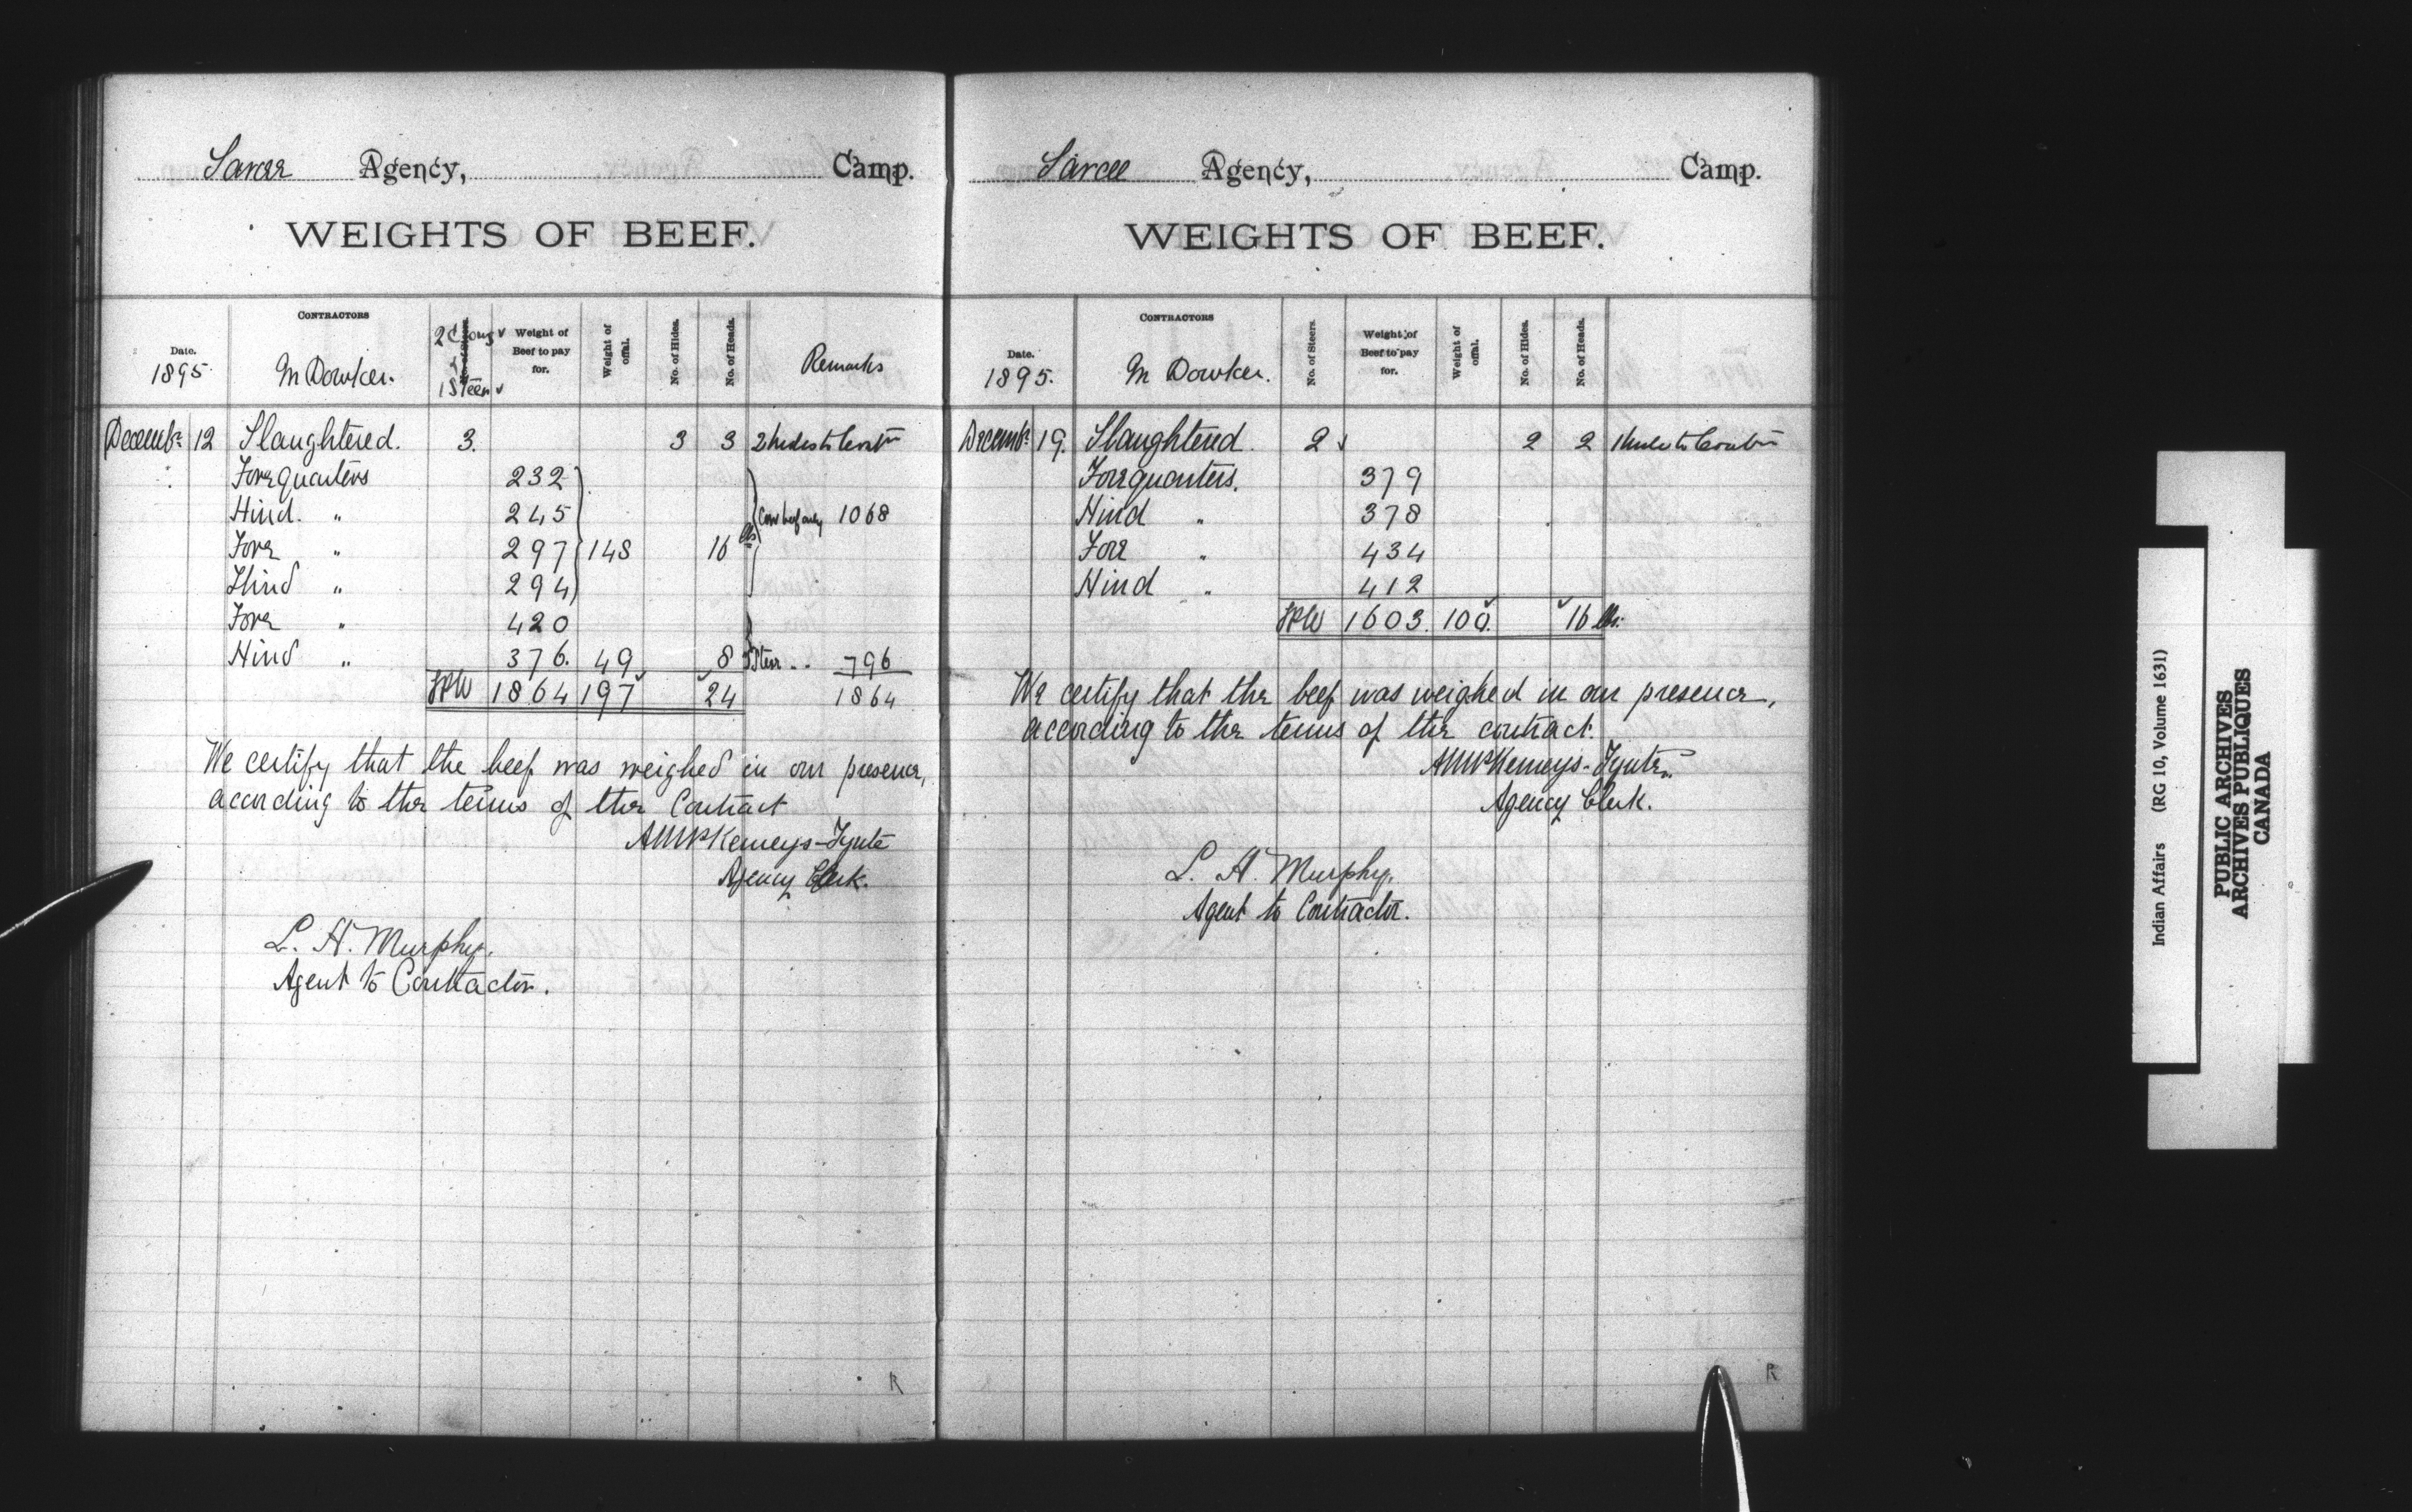 Sarcee Agency, Camp.
WEIGHTS OF BEEF.
Date. 1895. CONTRACTORS M Dowker. 2 Cows & 1 Steer No. of Steers. Weight of Beef to pay for. Weight of offal. No. of Hides. No. of Heads. Remarks
Decembr 12 Slaughtered. 3. 3 3 2 hides to Contr
Forequarters 232
Hind. " 245 Cow beef only 1068
Fore " 297 148 16 lbs
Hind " 294
Fore " 420
Hind " 376. 49 8 Steer " " 796
1864 197 24 1864
We certify that the beef was weighed in our presence,
according to the terms of the Contract
AMcKemeys-Tynte
Agency Clerk.
L. H. Murphy.
Agent to Contractor.
R
Sarcee Agency, Camp.
WEIGHTS OF BEEF.
Date. 1895. CONTRACTORS M Dowker. No. of Steers. Weight of Beef to pay for. Weight of offal. No. of Hides. No. of Heads.
Decembr 19. Slaughtered. 2 2 2 1 hide to Contr
Forequarters. 379
Hind " 378
Fore " 434
Hind " 412
1603. 100. 16 lbs.
We certify that the beef was weighed in our presence,
according to the terms of the contract.
AMcKemeys-Tynte
Agency Clerk.
L. H. Murphy.
Agent to Contractor.
R
Indian Affairs (RG 10, Volume 1631)
PUBLIC ARCHIVES
ARCHIVES PUBLIQUES
CANADA